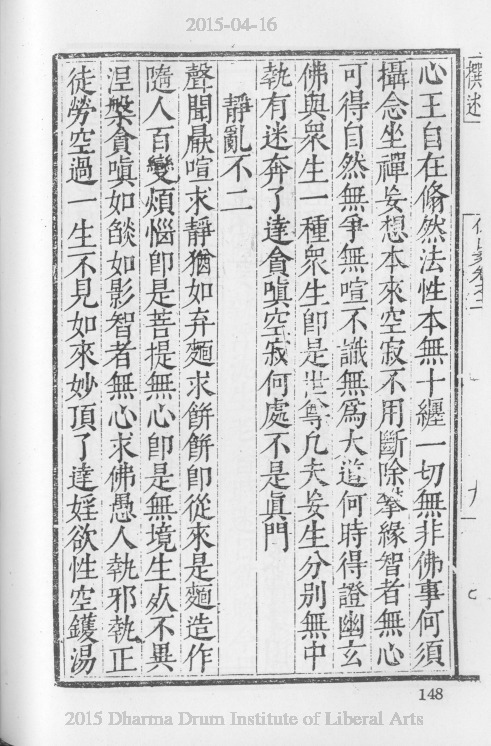 2015-04-16
撰述
心王自在翛然法性本無十纏一切無非佛事何須
攝念坐禪妄想本來空寂不用斷除攀緣智者無心
可得自然無爭無喧不識無爲大道何時得證幽玄
佛與衆生一種衆生卽是世尊凡夫妄生分別無中
執有迷奔了達貪嗔空寂何處不是眞門
靜亂不二
聲聞厭喧求靜猶如弃麵求餠餠卽從來是麵造作
隨人百變煩惱卽是菩提無心卽是無境生死不異
涅槃貪嗔如𦦨如影智者無心求佛愚人執邪執正
徒勞空過一生不見如來妙頂了達婬欲性空鑊湯
148
2015 Dharma Drum Institute of Liberal Arts